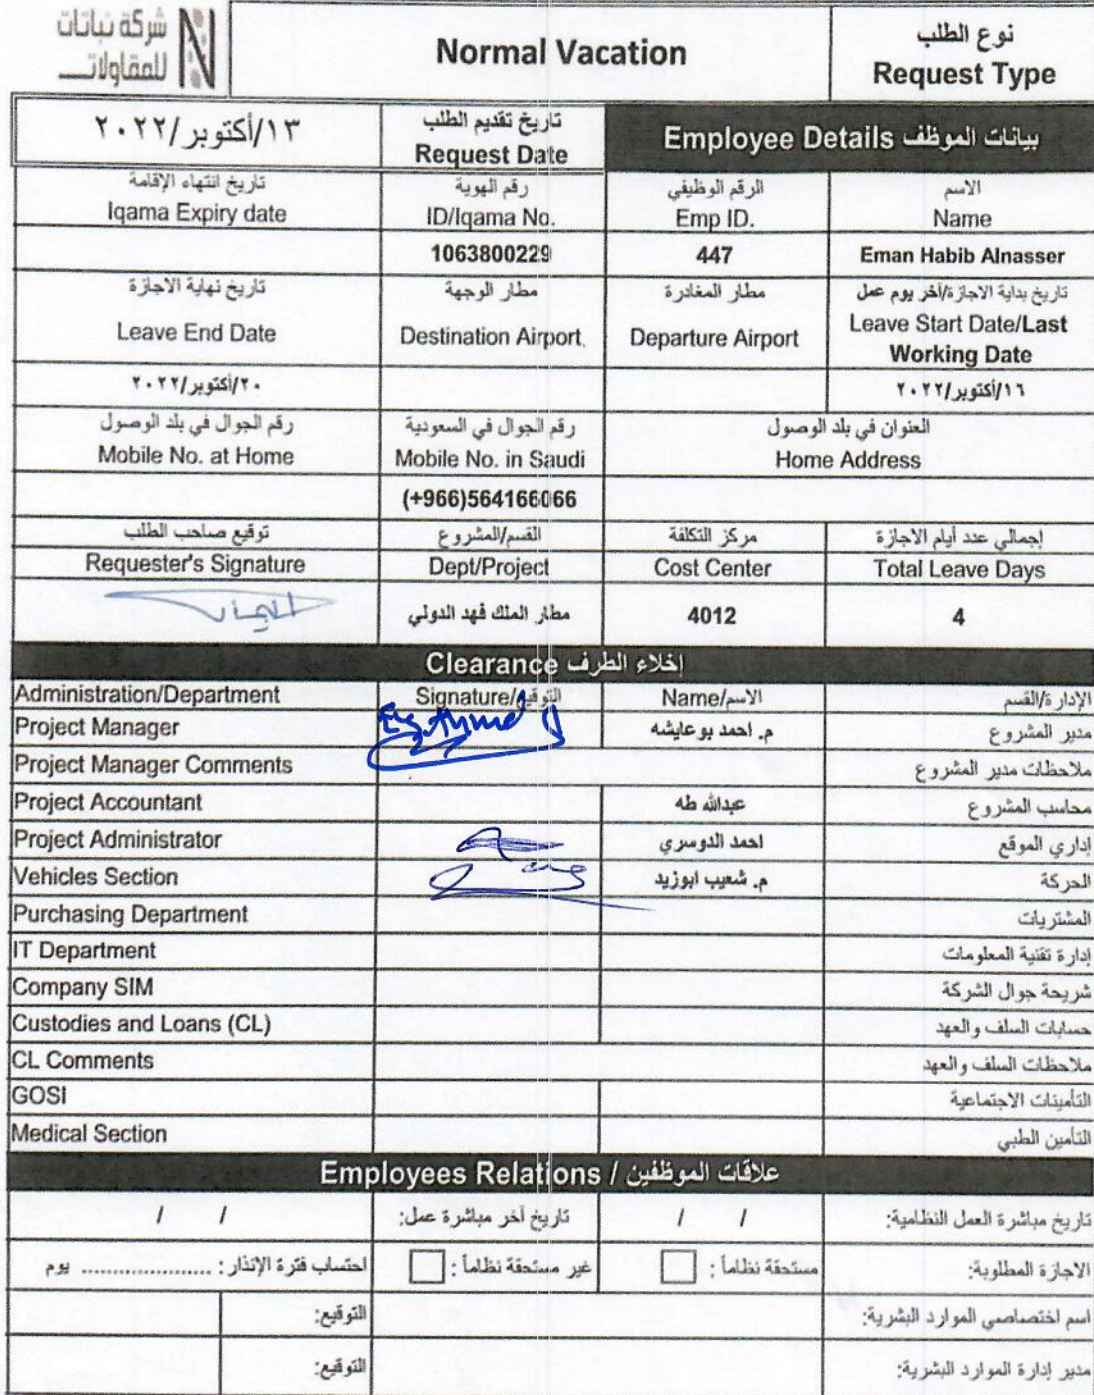 شركة نباتات
للمقاولات
Normal Vacation
نوع الطلب
Request Type
١٣/أكتوبر/٢٠٢٢
تاريخ تقديم الطلب
Request Date
بيانات الموظف Employee Details
تاريخ انتهاء الإقامة
Iqama Expiry date
رقم الهوية
ID/Iqama No.
الرقم الوظيفي
Emp ID.
الاسم
Name
1063800229
447
Eman Habib Alnasser
تاريخ نهاية الاجازة
Leave End Date
مطار الوجهة
Destination Airport
مطار المغادرة
Departure Airport
تاريخ بداية الاجازة/آخر يوم عمل
Leave Start Date/Last
Working Date
٢٠/أكتوبر/٢٠٢٢
١٦/أكتوبر/٢٠٢٢
رقم الجوال في بلد الوصول
Mobile No. at Home
رقم الجوال في السعودية
Mobile No. in Saudi
العنوان في بلد الوصول
Home Address
(+966)564166066
توقيع صاحب الطلب
Requester's Signature
القسم/المشروع
Dept/Project
مركز التكلفة
Cost Center
إجمالي عدد أيام الاجازة
Total Leave Days
مطار الملك فهد الدولي
4012
4
إخلاء الطرف Clearance
Administration/Department
التوقيع/Signature
الاسم/Name
الإدارة/القسم
Project Manager
Eng Ahmed
م. احمد بوعايشه
مدير المشروع
Project Manager Comments
ملاحظات مدير المشروع
Project Accountant
عبدالله طه
محاسب المشروع
Project Administrator
احمد الدوسري
إداري الموقع
Vehicles Section
م. شعيب ابوزيد
الحركة
Purchasing Department
المشتريات
IT Department
إدارة تقنية المعلومات
Company SIM
شريحة جوال الشركة
Custodies and Loans (CL)
حسابات السلف والعهد
CL Comments
ملاحظات السلف والعهد
GOSI
التأمينات الاجتماعية
Medical Section
التأمين الطبي
علاقات الموظفين / Employees Relations
تاريخ مباشرة العمل النظامية: / /
تاريخ آخر مباشرة عمل: / /
الاجازة المطلوبة:
مستحقة نظاماً :
غير مستحقة نظاماً :
احتساب فترة الإنذار : ..................... يوم
اسم اختصاصي الموارد البشرية:
التوقيع:
مدير إدارة الموارد البشرية:
التوقيع: